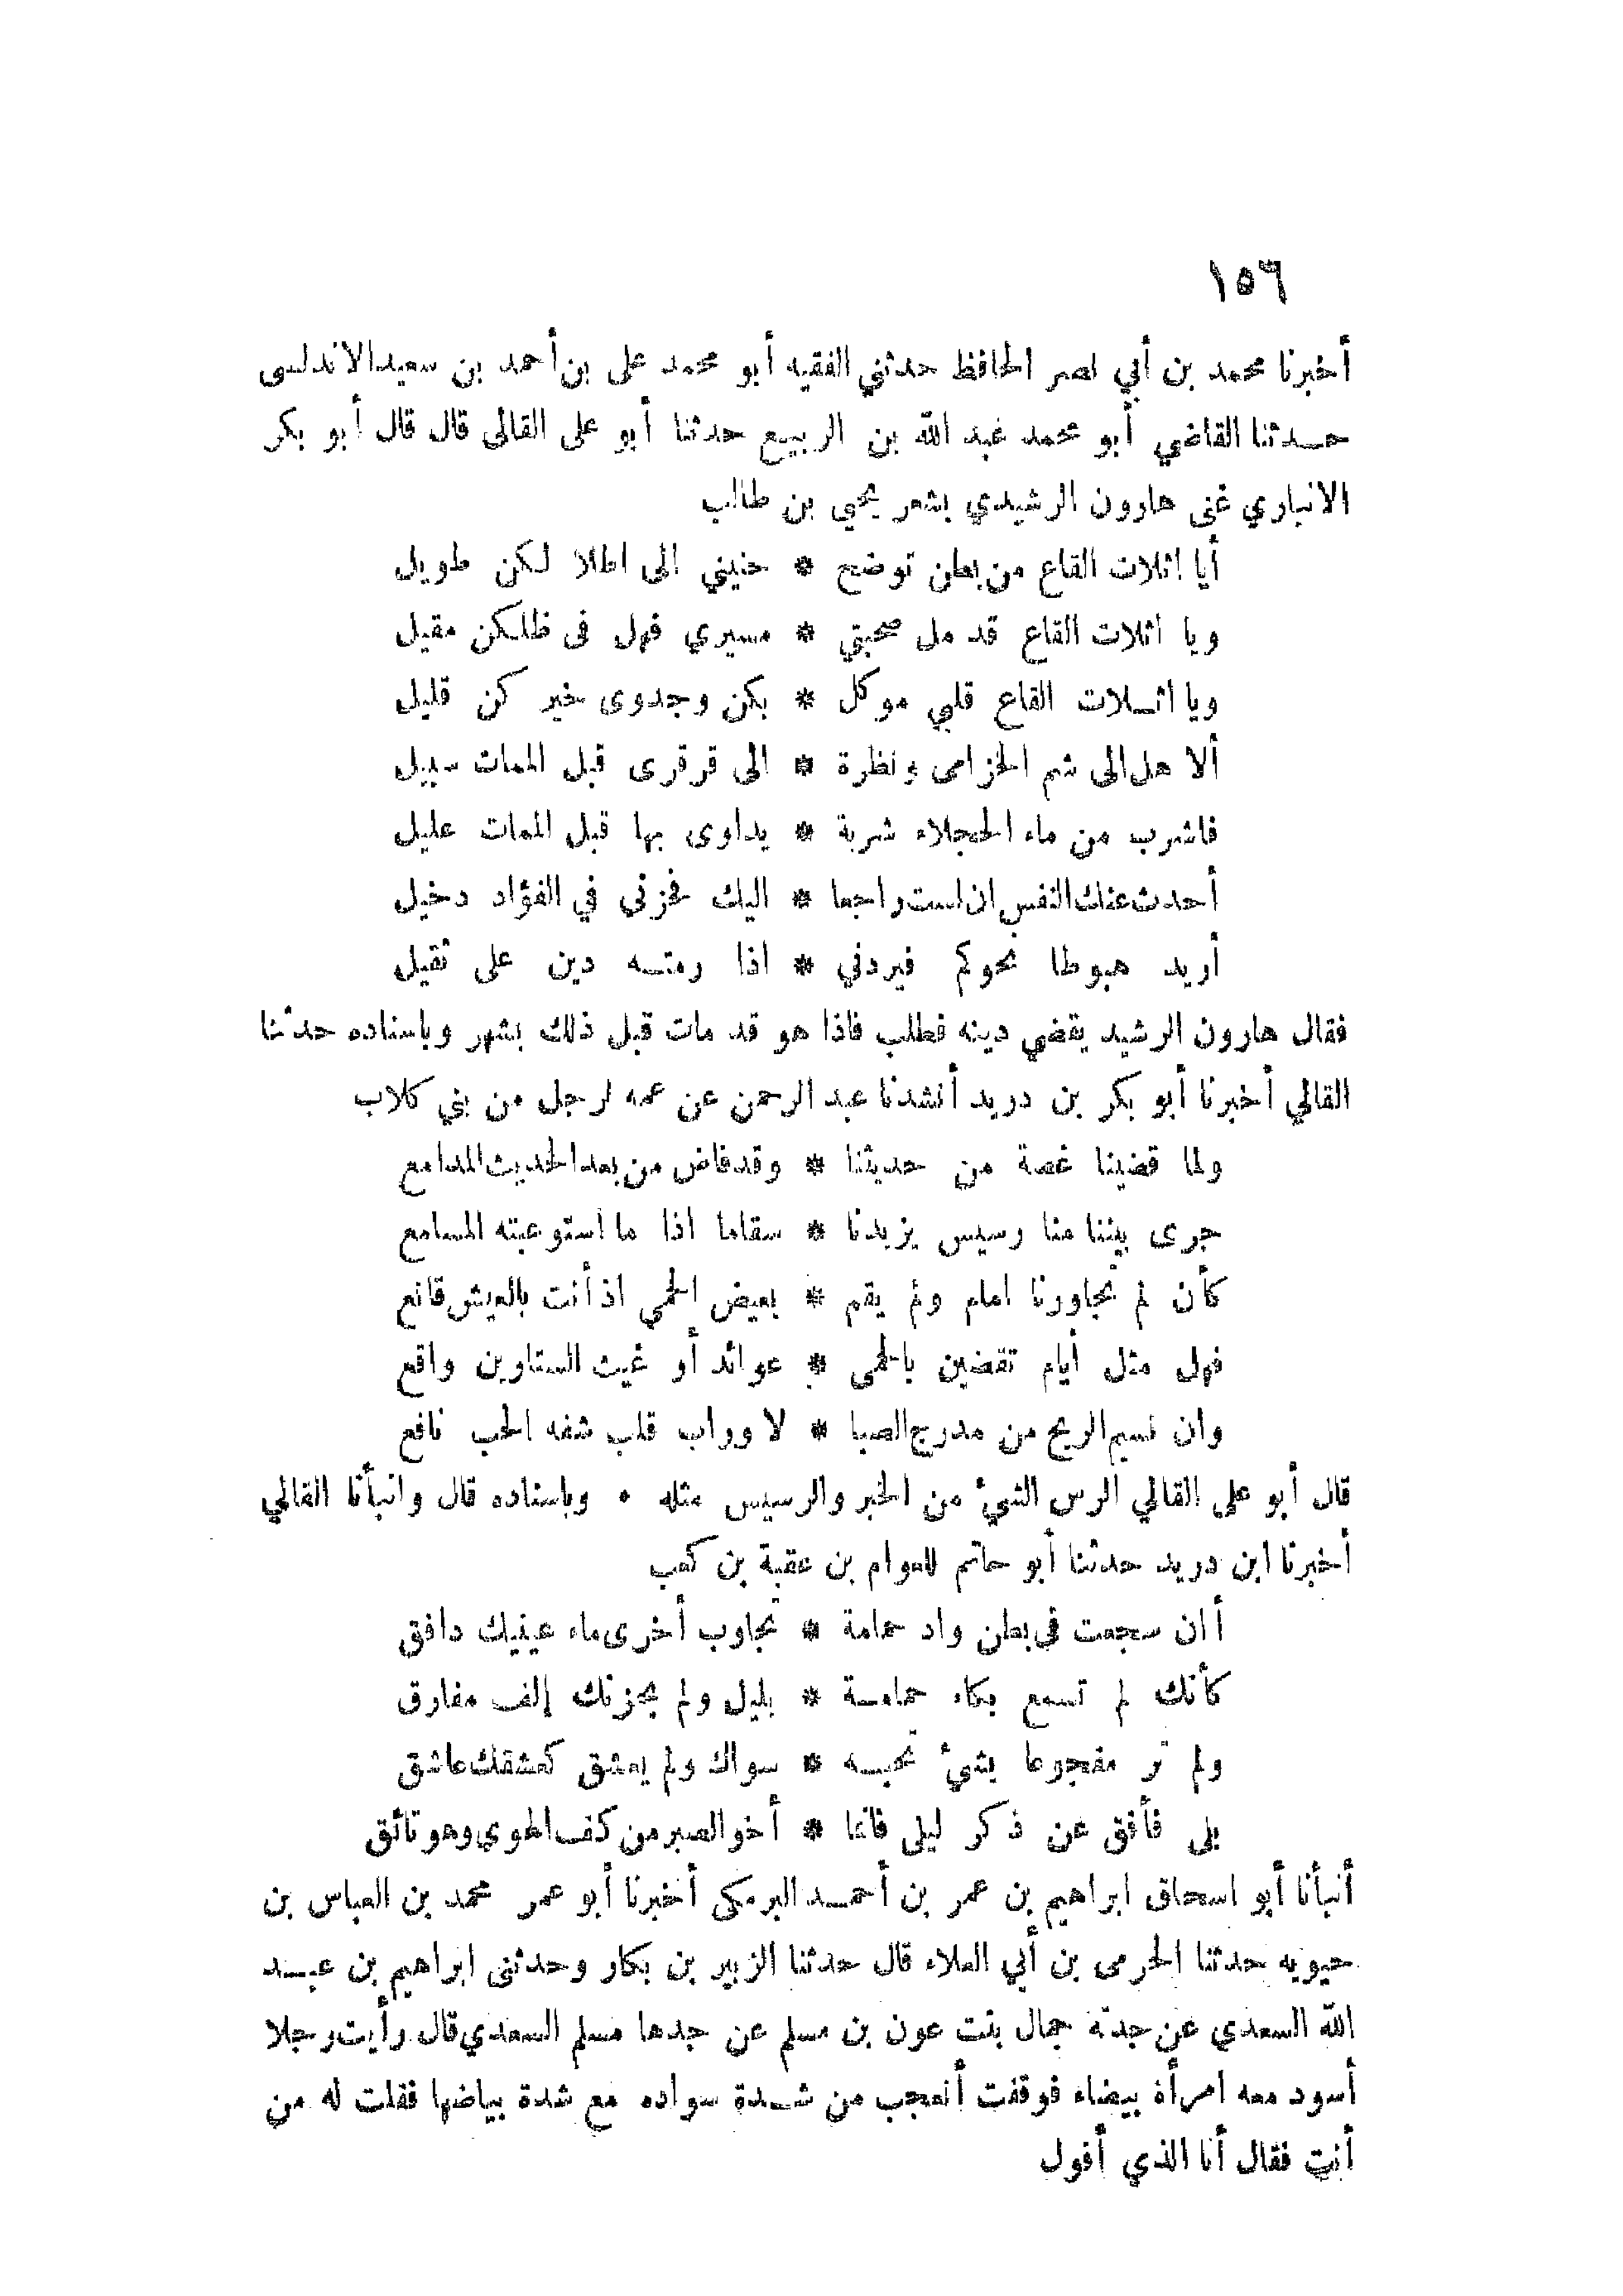 ١٥٦
أخبرنا محمد بن أبي نصر الحافظ حدثني الفقيه أبو محمد على بن أحمد بن سعيد الاندلسى
حدثنا القاضي أبو محمد عبد الله بن الربيع حدثنا أبو على القالى قال قال أبو بكر
الانباري غنى هارون الرشيدي بشعر يحيى بن طالب
أيا اثلات القاع من بطن توضح * حنيني الى اطلالكن طويل
ويا اثلات القاع قد مل صحبتي * مسيري فهل فى ظلكن مقيل
ويا اثلات القاع قلبي موكل * بكن وجدوى خيركن قليل
ألا هل الى شم الخزامى ونظرة * الى قرقرى قبل الممات سبيل
فاشرب من ماء الحجلاء شربة * يداوى بها قبل الممات عليل
أحدث عنك النفس ان لست راجعا * اليك فحزنى في الفؤاد دخيل
أريد هبوطا نحوكم فيردني * اذا رمته دين على ثقيل
فقال هارون الرشيد يقضي دينه فطلب فاذا هو قد مات قبل ذلك بشهر وباسناده حدثنا
القالي أخبرنا أبو بكر بن دريد أنشدنا عبد الرحمن عن عمه لرجل من بني كلاب
ولما قضينا غصة من حديثنا * وقد فاض من بعد الحديث المدامع
جرى بيننا منا رسيس يزيدنا * سقاما اذا ما استوعبته المسامع
كأن لم تجاورنا امام ولم يقم * بعيض الحمي اذ أنت بالعيش قانع
فهل مثل أيام تقضين بالحمى * عوائد أو غيث الستاوين واقع
وان نسيم الريح من مدرج الصبا * لا وراب قلب شفه الحب نافع
قال أبو على القالي الرس الشيئ من الخبر والرسيس مثله ٠ وباسناده قال وانبأنا القالي
أخبرنا ابن دريد حدثنا أبو حاتم للعوام بن عقبة بن كعب
أان سجعت فى بطن واد حمامة * تجاوب أخرى ماء عينيك دافق
كأنك لم تسمع بكاء حمامة * بليل ولم يحزنك إلف مفارق
ولم تر مفجوعا بشيئ تحبه * سواك ولم يعشق كعشقك عاشق
بلى فأفق عن ذكر ليلى فانما * أخو الصبر من كف الهوى وهو تائق
أنبأنا أبو اسحاق ابراهيم بن عمر بن أحمد البرمكى أخبرنا أبو عمر محمد بن العباس بن
حيويه حدثنا الحرمى بن أبي العلاء قال حدثنا الزبير بن بكار وحدثنى ابراهيم بن عبد
الله السعدي عن جدته جمال بنت عون بن مسلم عن جدها مسلم السعدي قال رأيت رجلا
أسود معه امرأة بيضاء فوقفت أتعجب من شدة سواده مع شدة بياضها فقلت له من
أنت فقال أنا الذي أقول